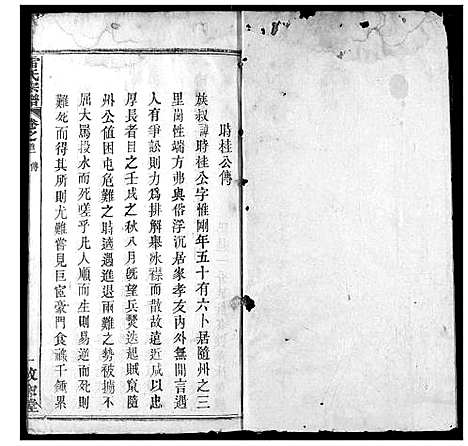 時桂公傳
族叔諱時桂公字惟剛年五十有六卜居隨州之三
里崗性端方弗與俗浮沉居家孝友內外無閒言遇
人有爭訟則力為排解舉冰襟而散故遠近咸以忠
厚長者目之壬戌之秋八月既望兵燹迭起賊竄隨
州公值困屯危難之時適遇進退兩難之勢被擄不
屈大罵投水而死嗟乎凡人順而生則易逆而死則
難死而得其所則尤難嘗見巨宦豪門食祿千鍾累
氏宗譜
卷之
傳
一
堂